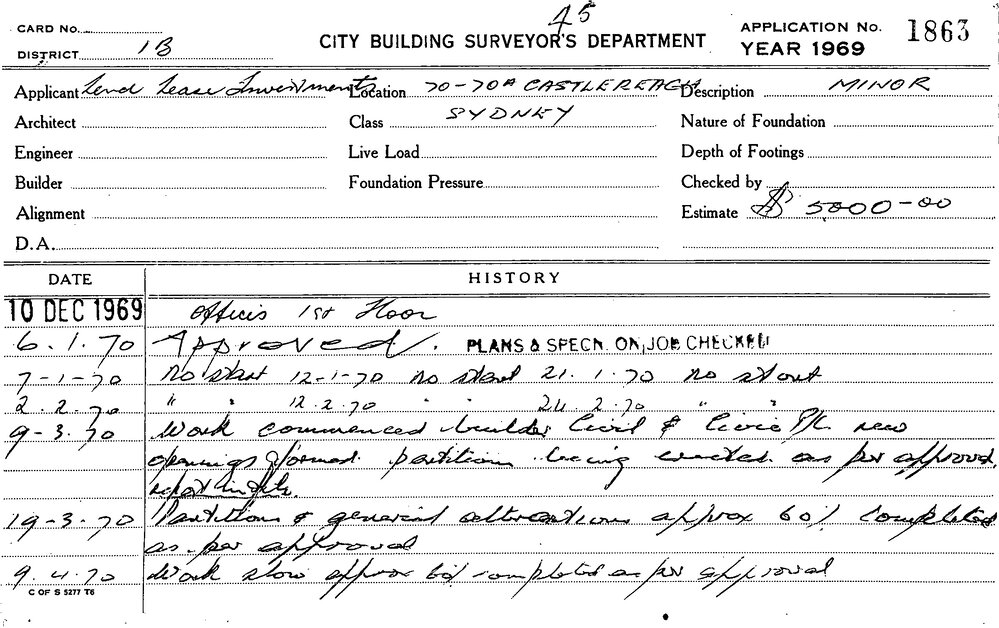 45
CARD No.
DISTRICT 1B
CITY BUILDING SURVEYOR'S DEPARTMENT
APPLICATION No. 1863
YEAR 1969
Applicant Lend Lease Investments Location 70-70A CASTLEREAGH Description MINOR
Architect Class SYDNEY Nature of Foundation
Engineer Live Load Depth of Footings
Builder Foundation Pressure Checked by
Alignment Estimate $ 5000-00
D.A.
DATE HISTORY
10 DEC 1969 Offices 1st Floor
6.1.70 Approved. PLANS & SPECN. ON JOB CHECKED
7-1-70 No start 12-1-70 no start 21.1.70 no start
2.2.70 " " 12.2.70 " " 24.2.70 " "
9-3.70 Work commenced builder Civil & Civic P/L new
openings formed partition being erected as per approval.
19-3.70 Partitions & general alterations approx 60% completed
as per approval
9.4.70 Work slow approx completed as per approval
C OF S 5277 T6